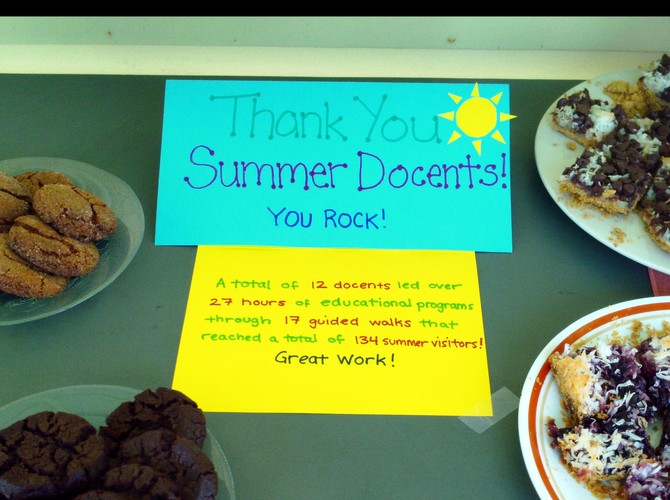 Thank You
Summer Docents!
You Rock!
A total of 12 docents led over
27 hours of educational programs
through 17 guided walks that
reached a total of 134 summer visitors!
Great Work!